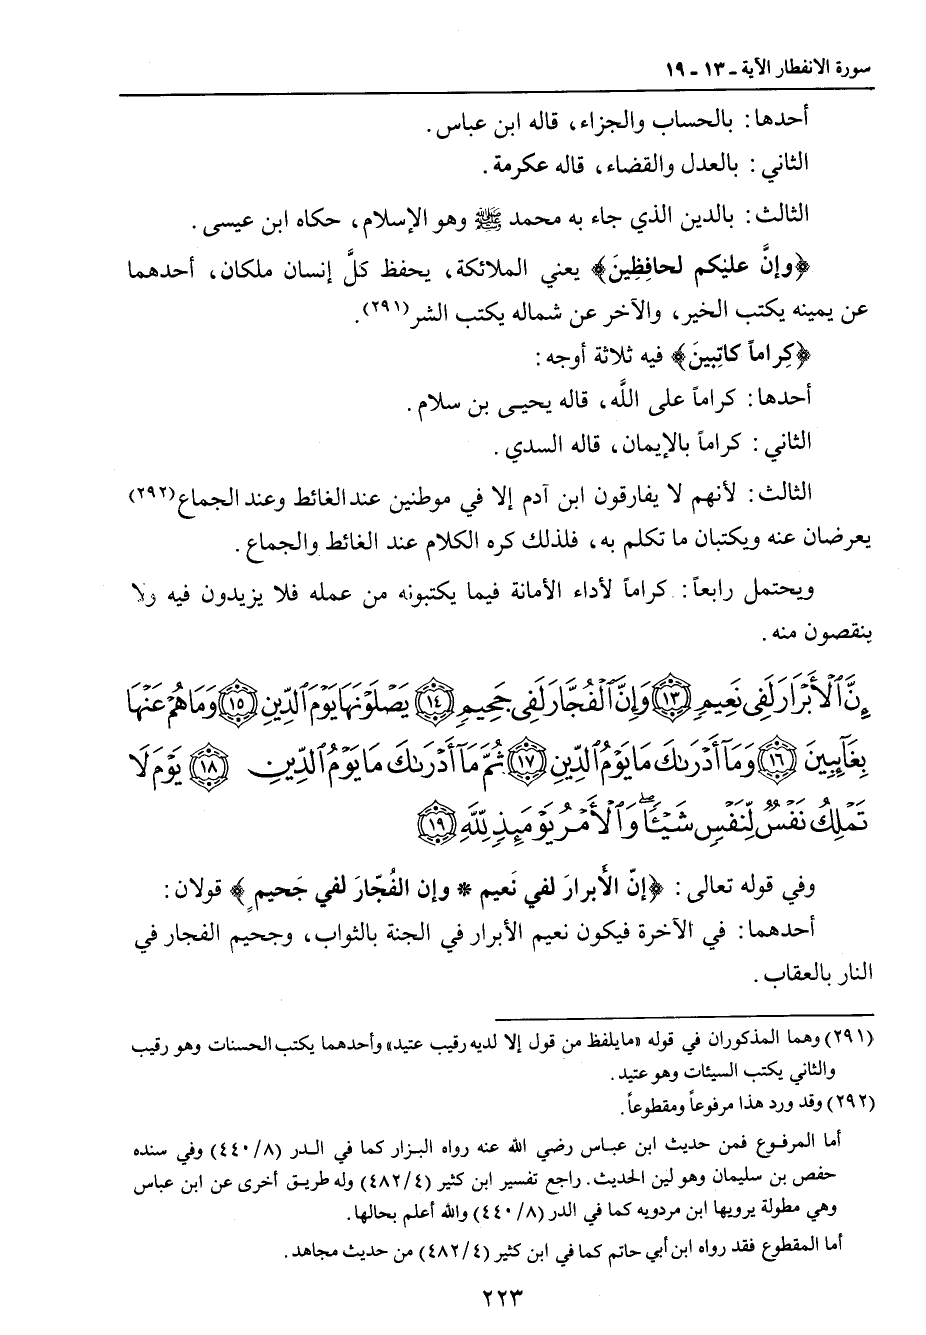 سورة الانفطار الآية - ١٣ - ١٩
أحدها: بالحساب والجزاء، قاله ابن عباس.
الثاني: بالعدل والقضاء، قاله عكرمة.
الثالث: بالدين الذي جاء به محمد ﷺ وهو الإسلام، حكاه ابن عيسى.
﴿وإنَّ عليكم لحافِظِينَ﴾ يعني الملائكة، يحفظ كلَّ إنسان ملكان، أحدهما
عن يمينه يكتب الخير، والآخر عن شماله يكتب الشر(٢٩١).
﴿كِراماً كاتِبِينَ﴾ فيه ثلاثة أوجه:
أحدها: كراماً على اللَّه، قاله يحيى بن سلام.
الثاني: كراماً بالإيمان، قاله السدي.
الثالث: لأنهم لا يفارقون ابن آدم إلا في موطنين عند الغائط وعند الجماع(٢٩٢)
يعرضان عنه ويكتبان ما تكلم به، فلذلك كره الكلام عند الغائط والجماع.
ويحتمل رابعاً: كراماً لأداء الأمانة فيما يكتبونه من عمله فلا يزيدون فيه ولا
ينقصون منه.
إِنَّ ٱلْأَبْرَارَ لَفِى نَعِيمٍ ۝١٣ وَإِنَّ ٱلْفُجَّارَ لَفِى جَحِيمٍ ۝١٤ يَصْلَوْنَهَا يَوْمَ ٱلدِّينِ ۝١٥ وَمَا هُمْ عَنْهَا
بِغَآئِبِينَ ۝١٦ وَمَآ أَدْرَىٰكَ مَا يَوْمُ ٱلدِّينِ ۝١٧ ثُمَّ مَآ أَدْرَىٰكَ مَا يَوْمُ ٱلدِّينِ ۝١٨ يَوْمَ لَا
تَمْلِكُ نَفْسٌ لِّنَفْسٍ شَيْـًٔا ۖ وَٱلْأَمْرُ يَوْمَئِذٍ لِّلَّهِ ۝١٩
وفي قوله تعالى: ﴿إنّ الأَبرارَ لفي نَعيم * وإن الفُجّارَ لفي جَحيمٍ﴾ قولان:
أحدهما: في الآخرة فيكون نعيم الأبرار في الجنة بالثواب، وجحيم الفجار في
النار بالعقاب.
(٢٩١) وهما المذكوران في قوله «مايلفظ من قول إلا لديه رقيب عتيد» وأحدهما يكتب الحسنات وهو رقيب
والثاني يكتب السيئات وهو عتيد.
(٢٩٢) وقد ورد هذا مرفوعاً ومقطوعاً.
أما المرفوع فمن حديث ابن عباس رضي الله عنه رواه البزار كما في الدر (٤٤٠/٨) وفي سنده
حفص بن سليمان وهو لين الحديث. راجع تفسير ابن كثير (٤٨٢/٤) وله طريق أخرى عن ابن عباس
وهي مطولة يرويها ابن مردويه كما في الدر (٤٤٠/٨) والله أعلم بحالها.
أما المقطوع فقد رواه ابن أبي حاتم كما في ابن كثير (٤٨٢/٤) من حديث مجاهد.
٢٢٣